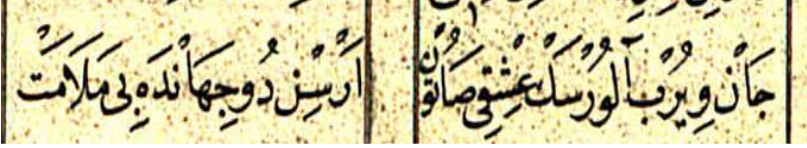 جَانْ وِيرُبْ آلُورْسَكْ عِشْقِى صَاتُونْ
اَرْسِزْ دُو جِهَانْدَهِ بِى مَلَامَتْ